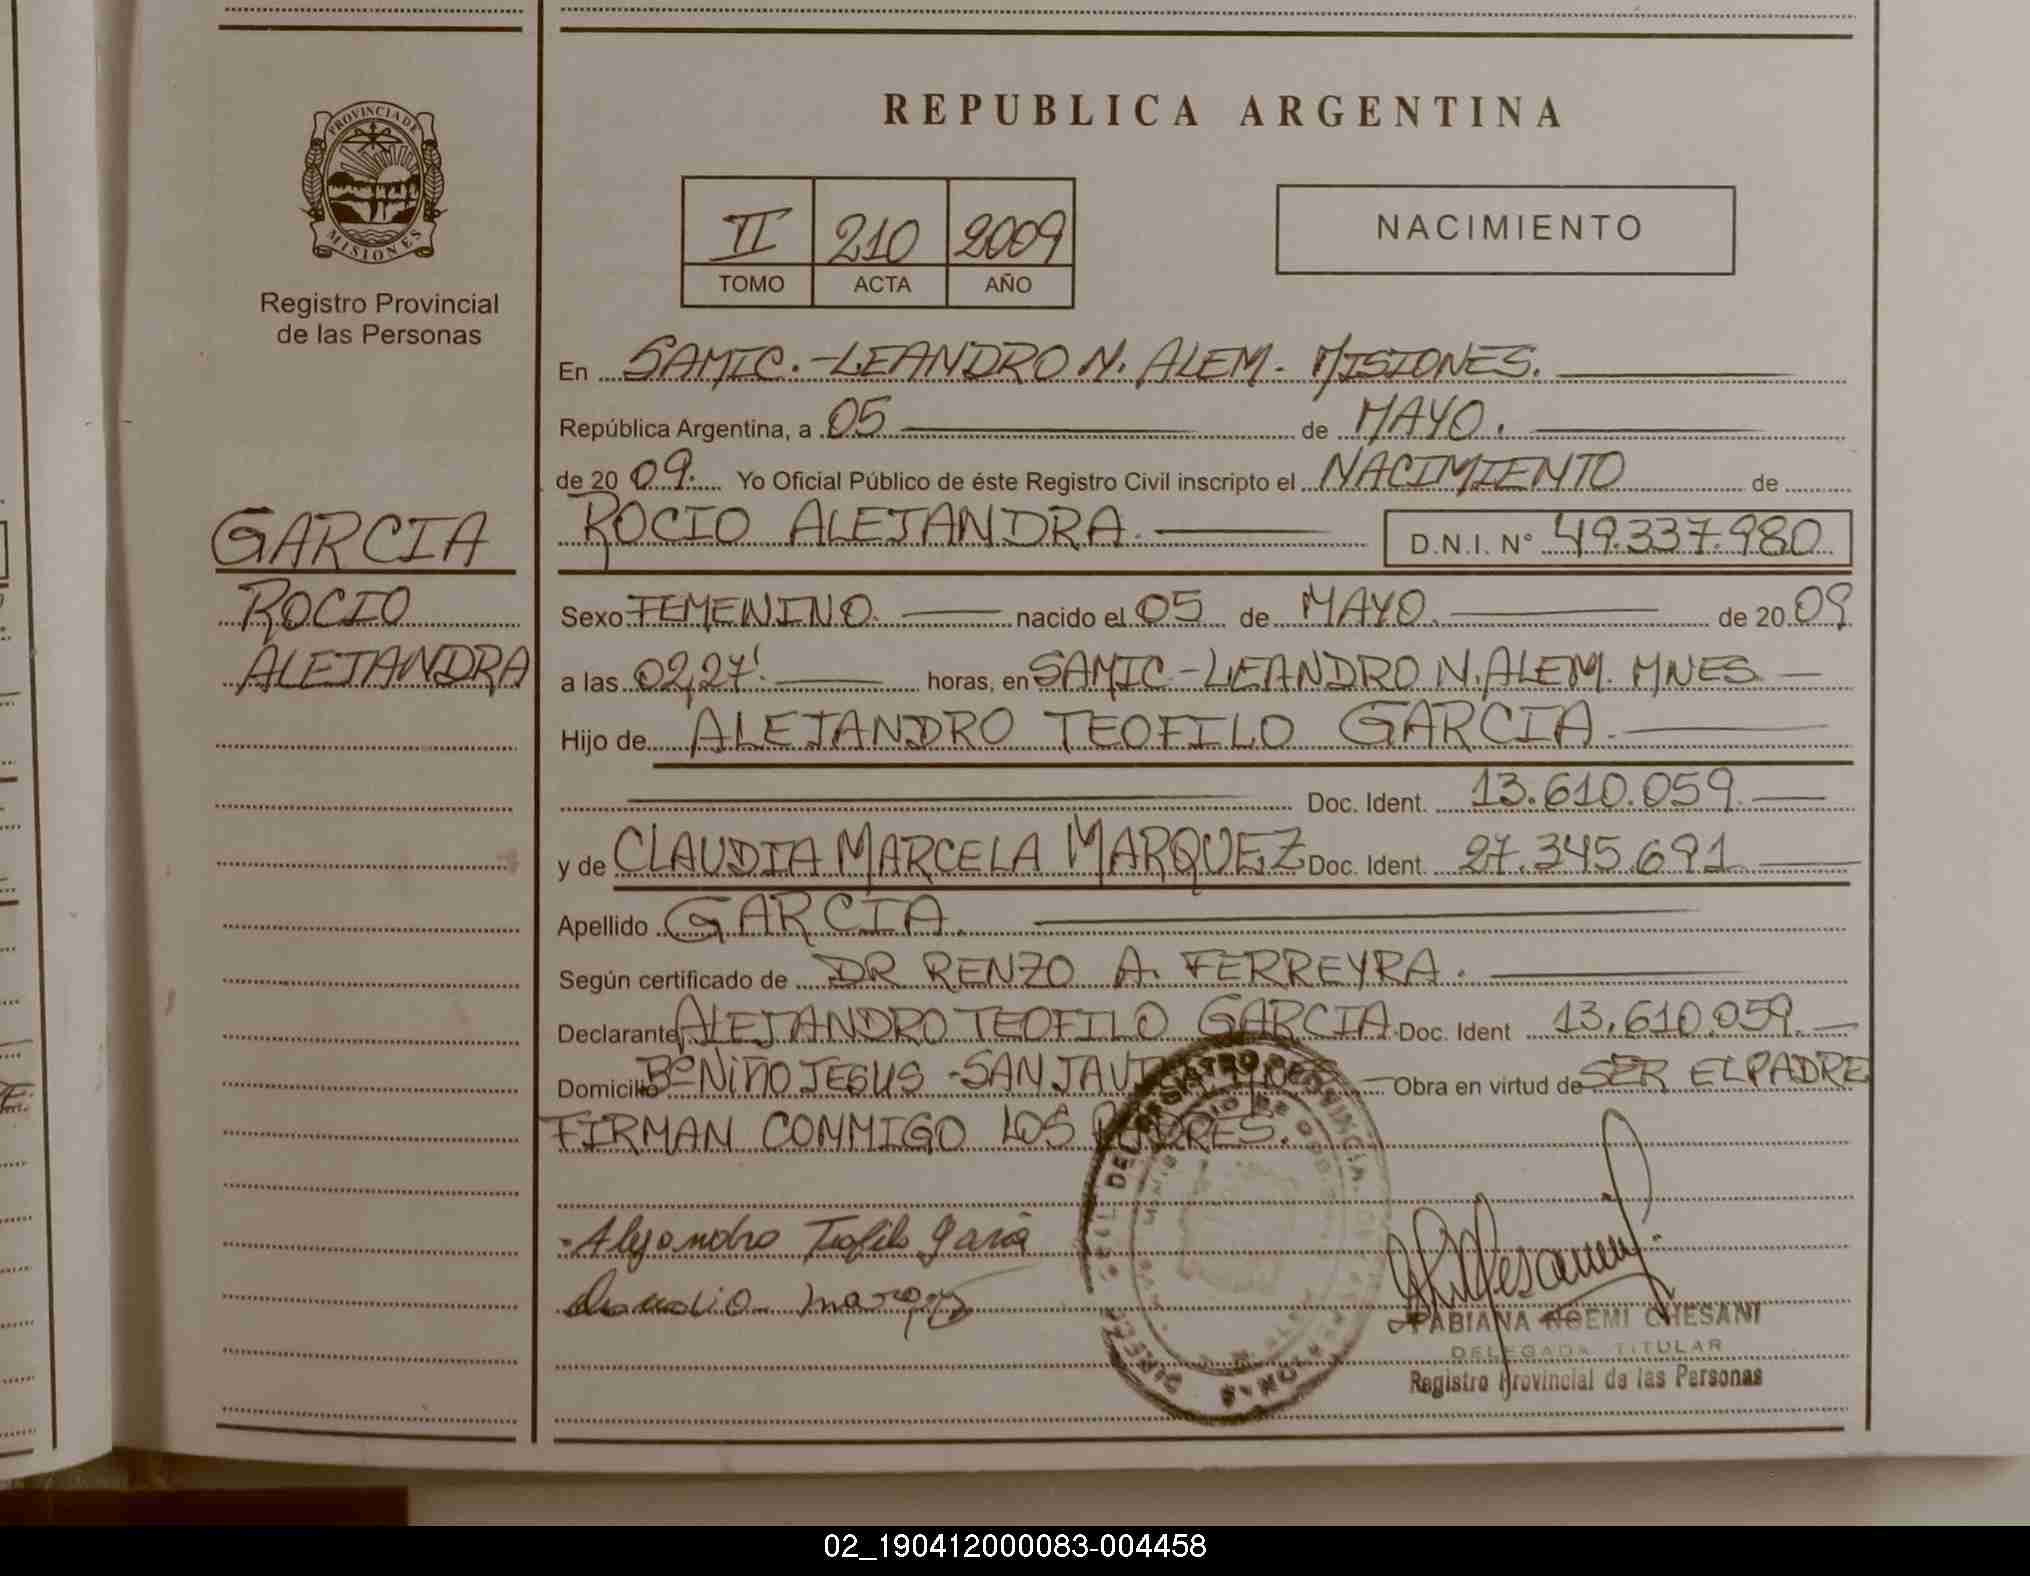 REPUBLICA ARGENTINA
PROVINCIA DE
MISIONES
Registro Provincial
de las Personas
II 210 2009
TOMO ACTA AÑO
NACIMIENTO
En SAMIC.-LEANDRO N. ALEM- MISIONES.
República Argentina, a 05 de MAYO.
de 20 09. Yo Oficial Público de éste Registro Civil inscripto el NACIMIENTO de
GARCIA
ROCIO
ALEJANDRA
ROCIO ALEJANDRA. D.N.I. N° 49.337.980
Sexo FEMENINO. nacido el 05 de MAYO. de 20 09
a las 02,27' horas, en SAMIC-LEANDRO N. ALEM. MNES
Hijo de ALEJANDRO TEOFILO GARCIA.
Doc. Ident. 13.610.059.
y de CLAUDIA MARCELA MARQUEZ Doc. Ident. 27.345.691
Apellido GARCIA.
Según certificado de DR RENZO A. FERREYRA.
Declarante ALEJANDRO TEOFILO GARCIA Doc. Ident 13.610.059.
Domicilio Bº NIÑO JESUS -SAN JAVI Obra en virtud de SER EL PADRE
FIRMAN CONMIGO LOS PADRES.
Alejandro Teofilo Garcia
Claudia Marquez
FABIANA NOEMI CHESANI
DELEGADA TITULAR
Registro Provincial de las Personas
02_190412000083-004458